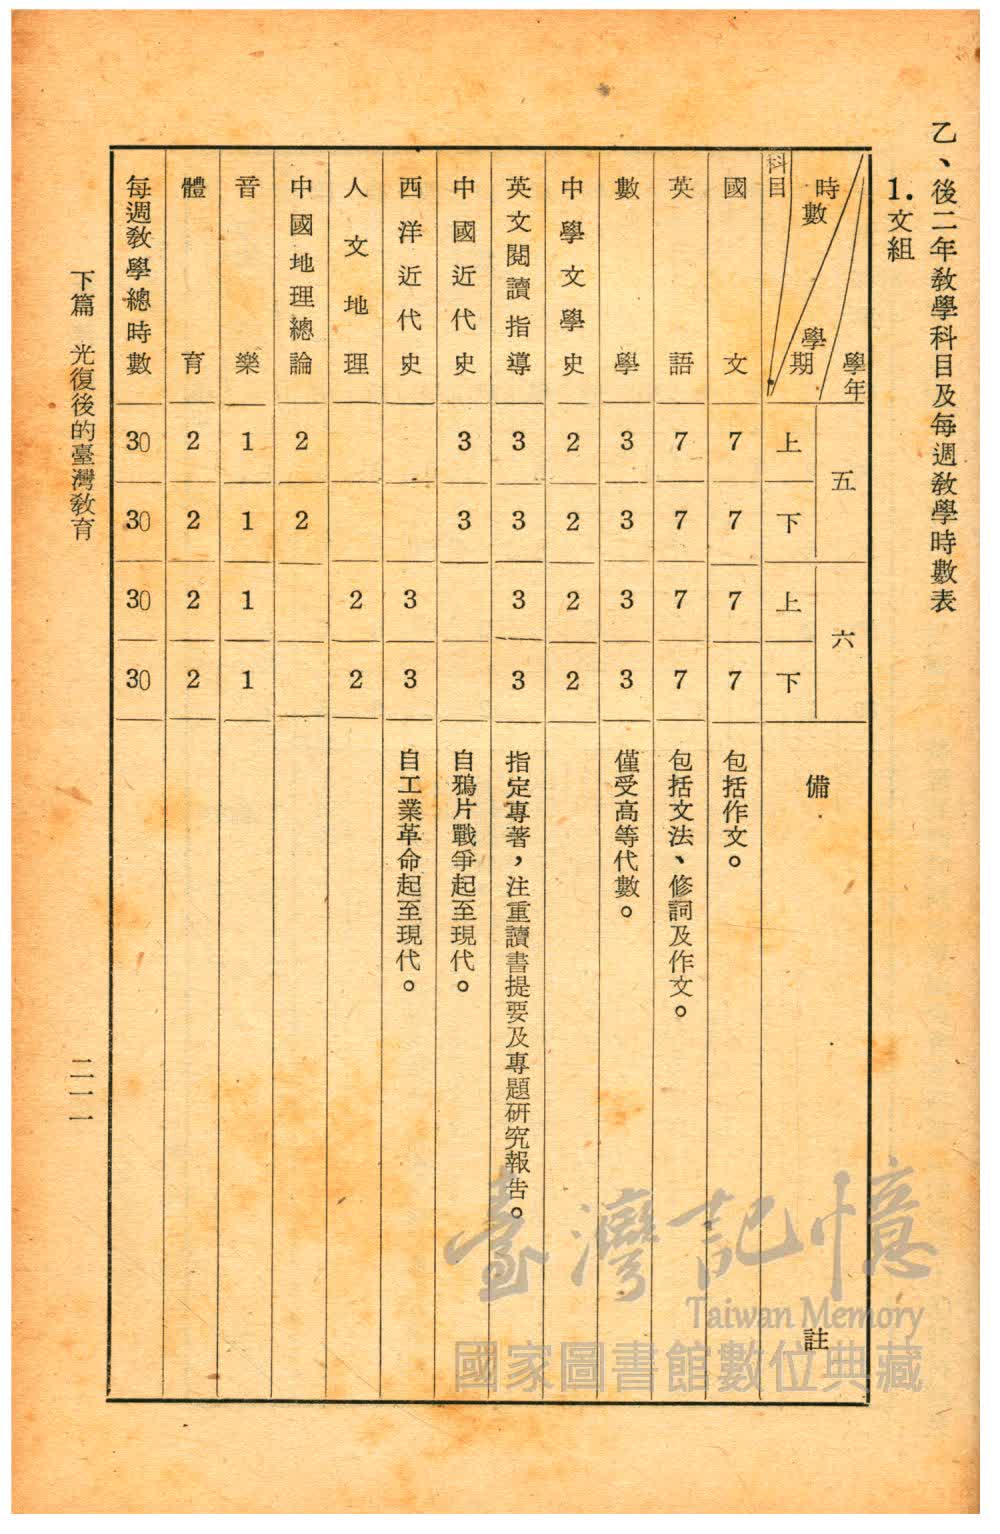 乙、後二年教學科目及每週教學時數表
1.文組
學年 學期 時數 科目
五 上 下
六 上 下
備註
國文 7 7 7 7 包括作文。
英語 7 7 7 7 包括文法、修詞及作文。
數學 3 3 3 3 僅受高等代數。
中學文學史 2 2 2 2
英文閱讀指導 3 3 3 3 指定專著，注重讀書提要及專題研究報告。
中國近代史 3 3 自鴉片戰爭起至現代。
西洋近代史 3 3 自工業革命起至現代。
人文地理 2 2
中國地理總論 2 2
音樂 1 1 1 1
體育 2 2 2 2
每週教學總時數 30 30 30 30
下篇 光復後的臺灣教育
二一一
臺灣記憶
Taiwan Memory
國家圖書館數位典藏